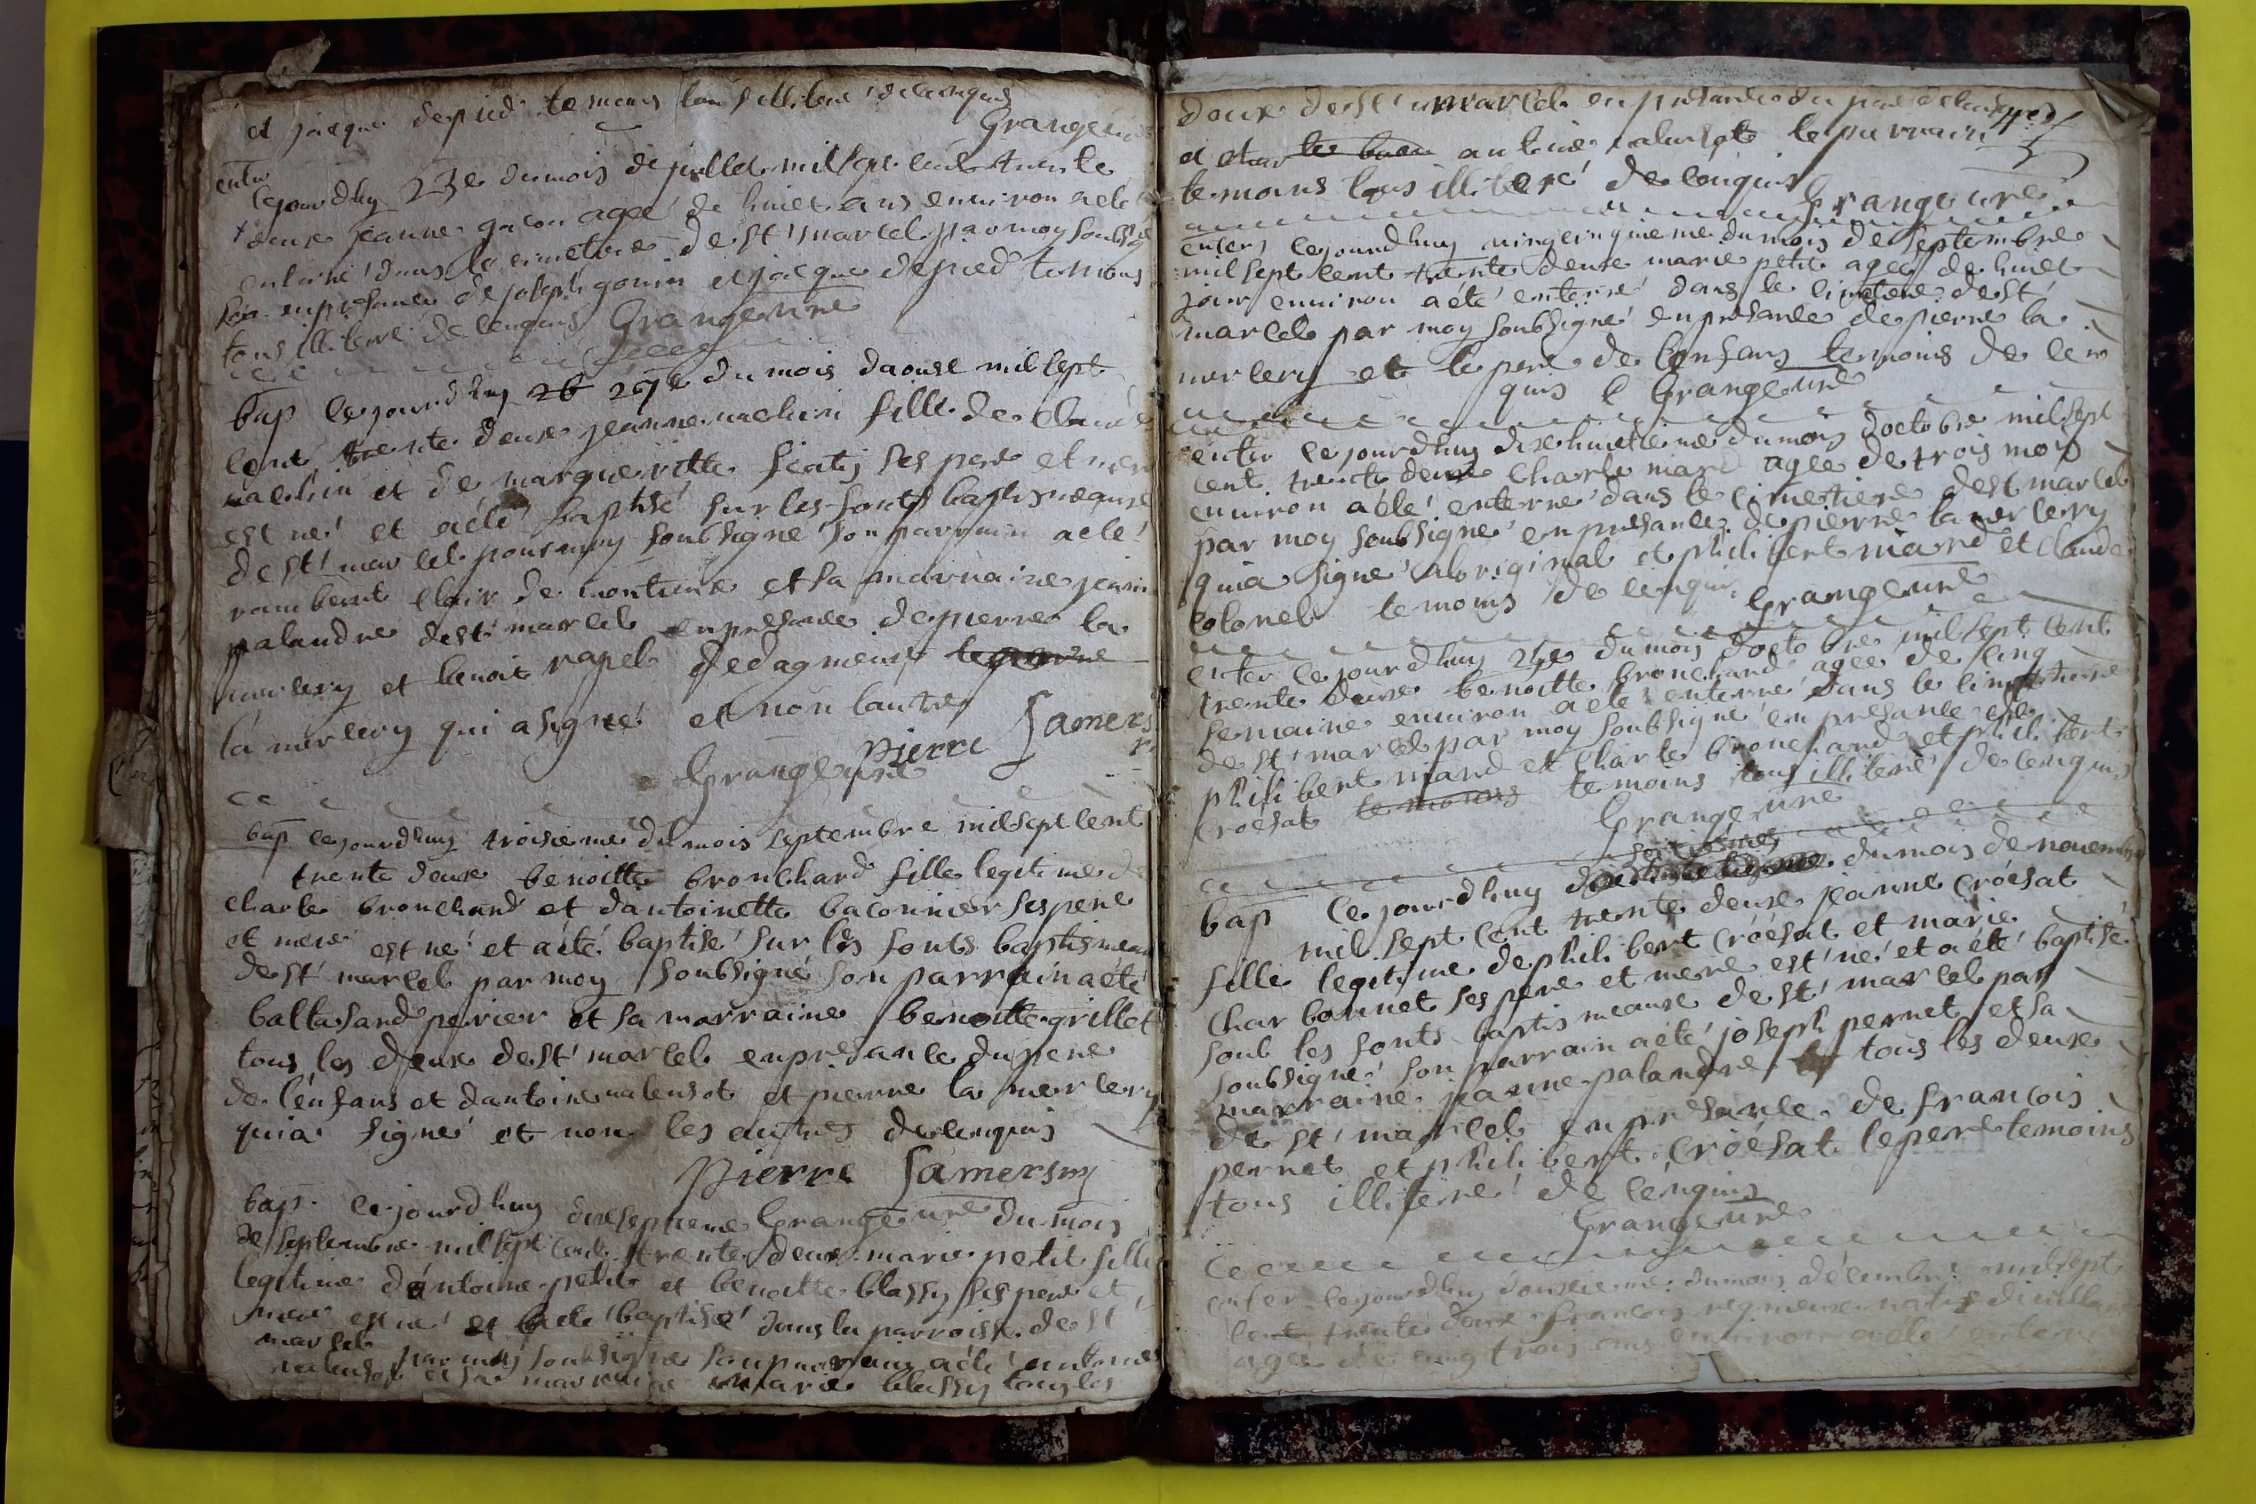 et jacque depied temoins tous illiteré de cenquis
Grange curé
enter
cejourdhuy 23e du mois de juillet mil sept cent trente
deuse jeanne gacon agee de huict ans environ a eté
enterré dans le cimetiere de st marcel par moy soubsigné
en presance de joseph gonin et jacque depied temoins
tous illiteré de cenquis Grange curé
bap cejourdhuy 26 27e du mois daoust mil sept
cent trente deuse jeanne machin fille de claude
machin et de marguerite ses pere et mere
est né et a eté baptisé sur les fonts baptismeause
de st marcel par moy soubsigné son parrain a eté
rambert clair de et sa marraine jeanne
palandre de st marcel en presance de pierre la
mercery et benoit rapel
la mercery qui a signé et non lautre
Pierre Lamers
Grange curé
bap cejourdhuy troisieme du mois septembre mil sept cent
trente deuse benoitte brouchard fille legitime de
charle brouchard et dantoinette baconnier ses pere
et mere est né et a eté baptisé sur les fonts baptismeause
de st marcel par moy soubsigné son parrain a eté
baltasard perier et sa marraine benoitte grillet
tous les deuse de st marcel en presance du pere
de lenfans et dantoine malensot et pierre la mercery
qui a signé et non les autres de cenquis
Pierre Lamersry
bap cejourdhuy diseseptieme Grange curé du mois
de septembre mil sept cent trente deuse marie petit fille
legitime dantoine petit et benoitte blassy ses pere et
mere est né et a eté baptisé dans la parroisse de st
marcel par moy soubsigné son parrain a eté antoine
malensot et sa marraine marie blassy tous les
deuse de st marcel en presance du pere de lenfans
et charle antoine malensot le parrain
temoins tous illiteré de cenquis
Grange curé
enter cejourdhuy vingcinquieme du mois de septembre
mil sept cent trente deuse marie petit agee de huict
jour environ a eté enterré dans le cimetiere de st
marcel par moy soubsigné en presance de pierre la
mercery et le pere de lenfans temoins de cen
quis Grange curé
enter cejourdhuy dise huictieme du mois doctobre mil sept
cent trente deuse charle niard agee de trois mois
environ a eté enterré dans le cimetiere de st marcel
par moy soubsigné en presance de pierre la mercery
qui a signé a loriginal et philibert niard et claude
colonel temoins de cenquis
Grange curé
enter cejourdhuy 29e du mois doctobre mil sept cent
trente deuse benoitte brouchard agee de cinq
semaine environ a eté enterré dans le cimetiere
de st marcel par moy soubsigné en presance de
philibert niard et charle brouchard et philibert
croésat temoins temoins tous illiteré de cenquis
Grange curé
bap cejourdhuy du mois de novembre
mil sept cent trente deuse jeanne croésat
fille legitime de philibert croésat et marie
charbonnet ses pere et mere est né et a eté baptisé
soub les fonts baptismeause de st marcel par
soubsigné son parrain a eté joseph pernet et sa
marraine jeanne palandre tous les deuse
de st marcel en presance de francois
pernet et philibert croésat le pere temoins
tous illiteré de cenquis
Grange curé
enter cejourdhuy dousieme du mois décembre mil sept
cent trente deuse francois natif de
agee de ving trois ans environ a eté enterré